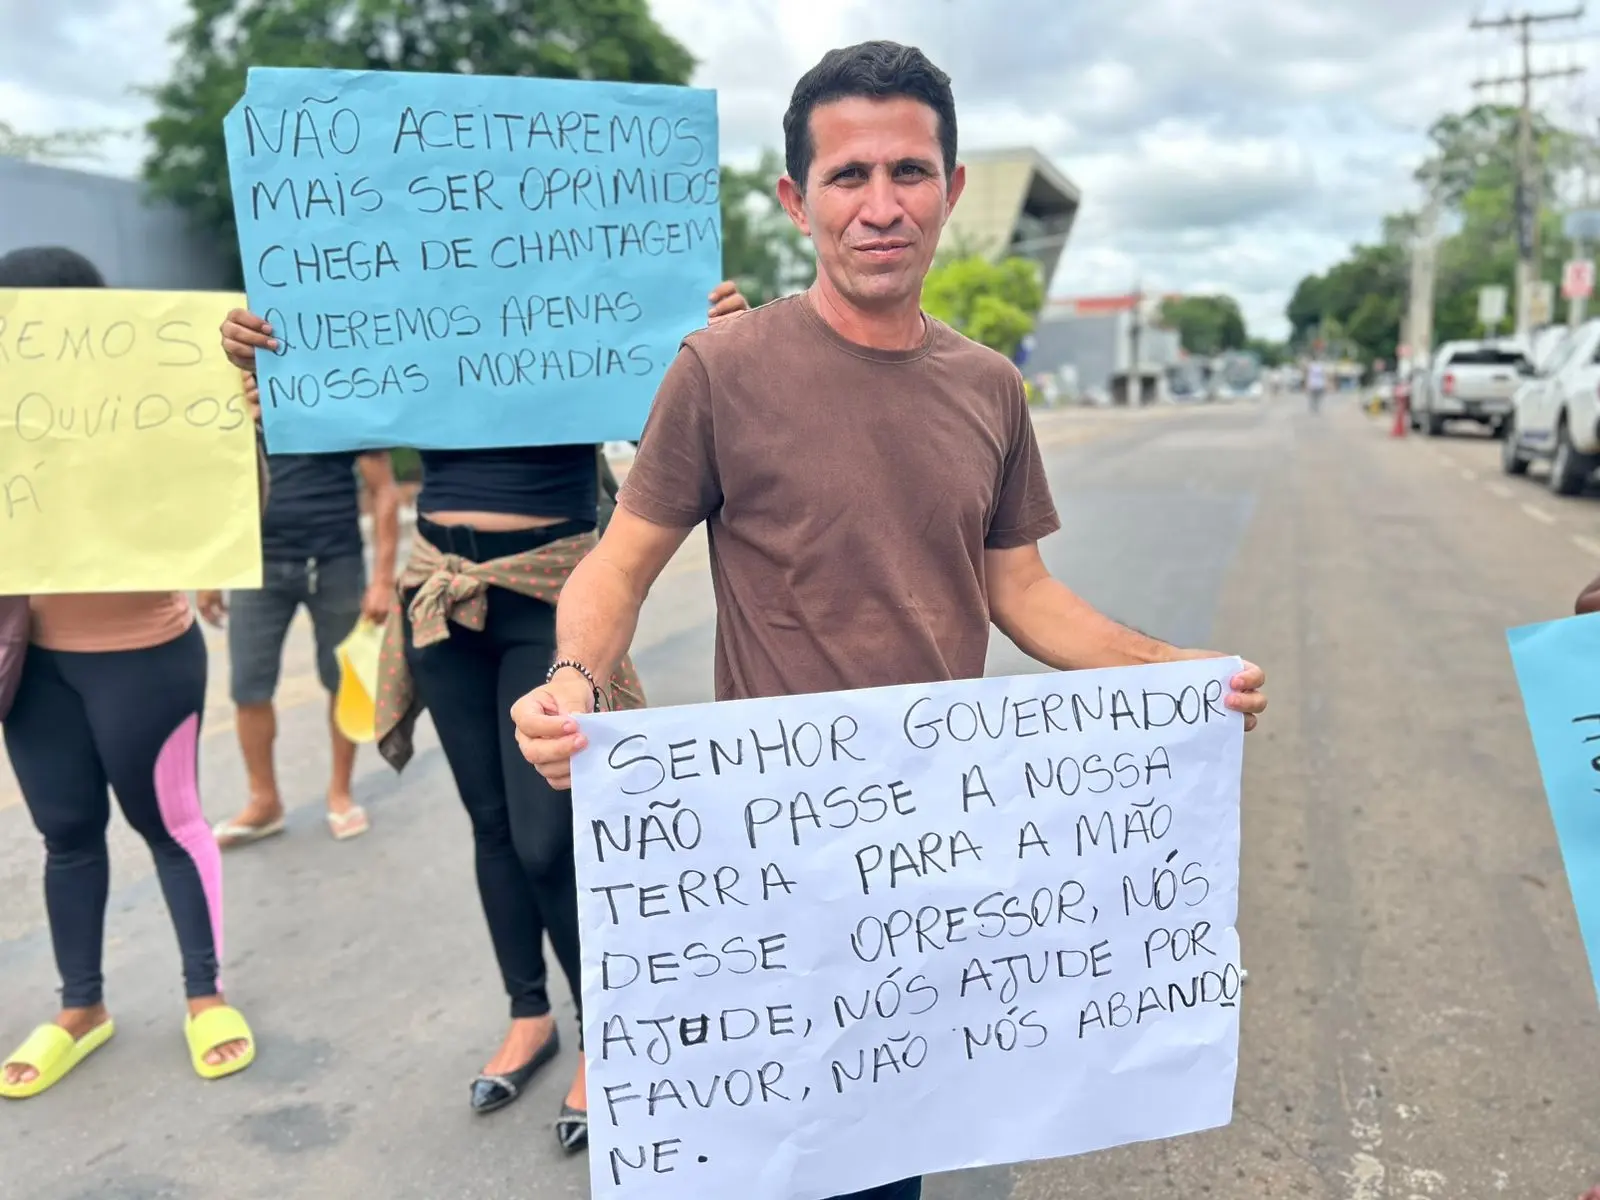 NÃO ACEITAREMOS
MAIS SER OPRIMIDOS
CHEGA DE CHANTAGEM
QUEREMOS APENAS
NOSSAS MORADIAS.
REMOS
OUVIDOS
SENHOR GOVERNADOR
NÃO PASSE A NOSSA
TERRA PARA A MÃO
DESSE OPRESSOR, NÓS
AJUDE, NÓS AJUDE POR
FAVOR, NÃO NÓS ABANDO
NE.